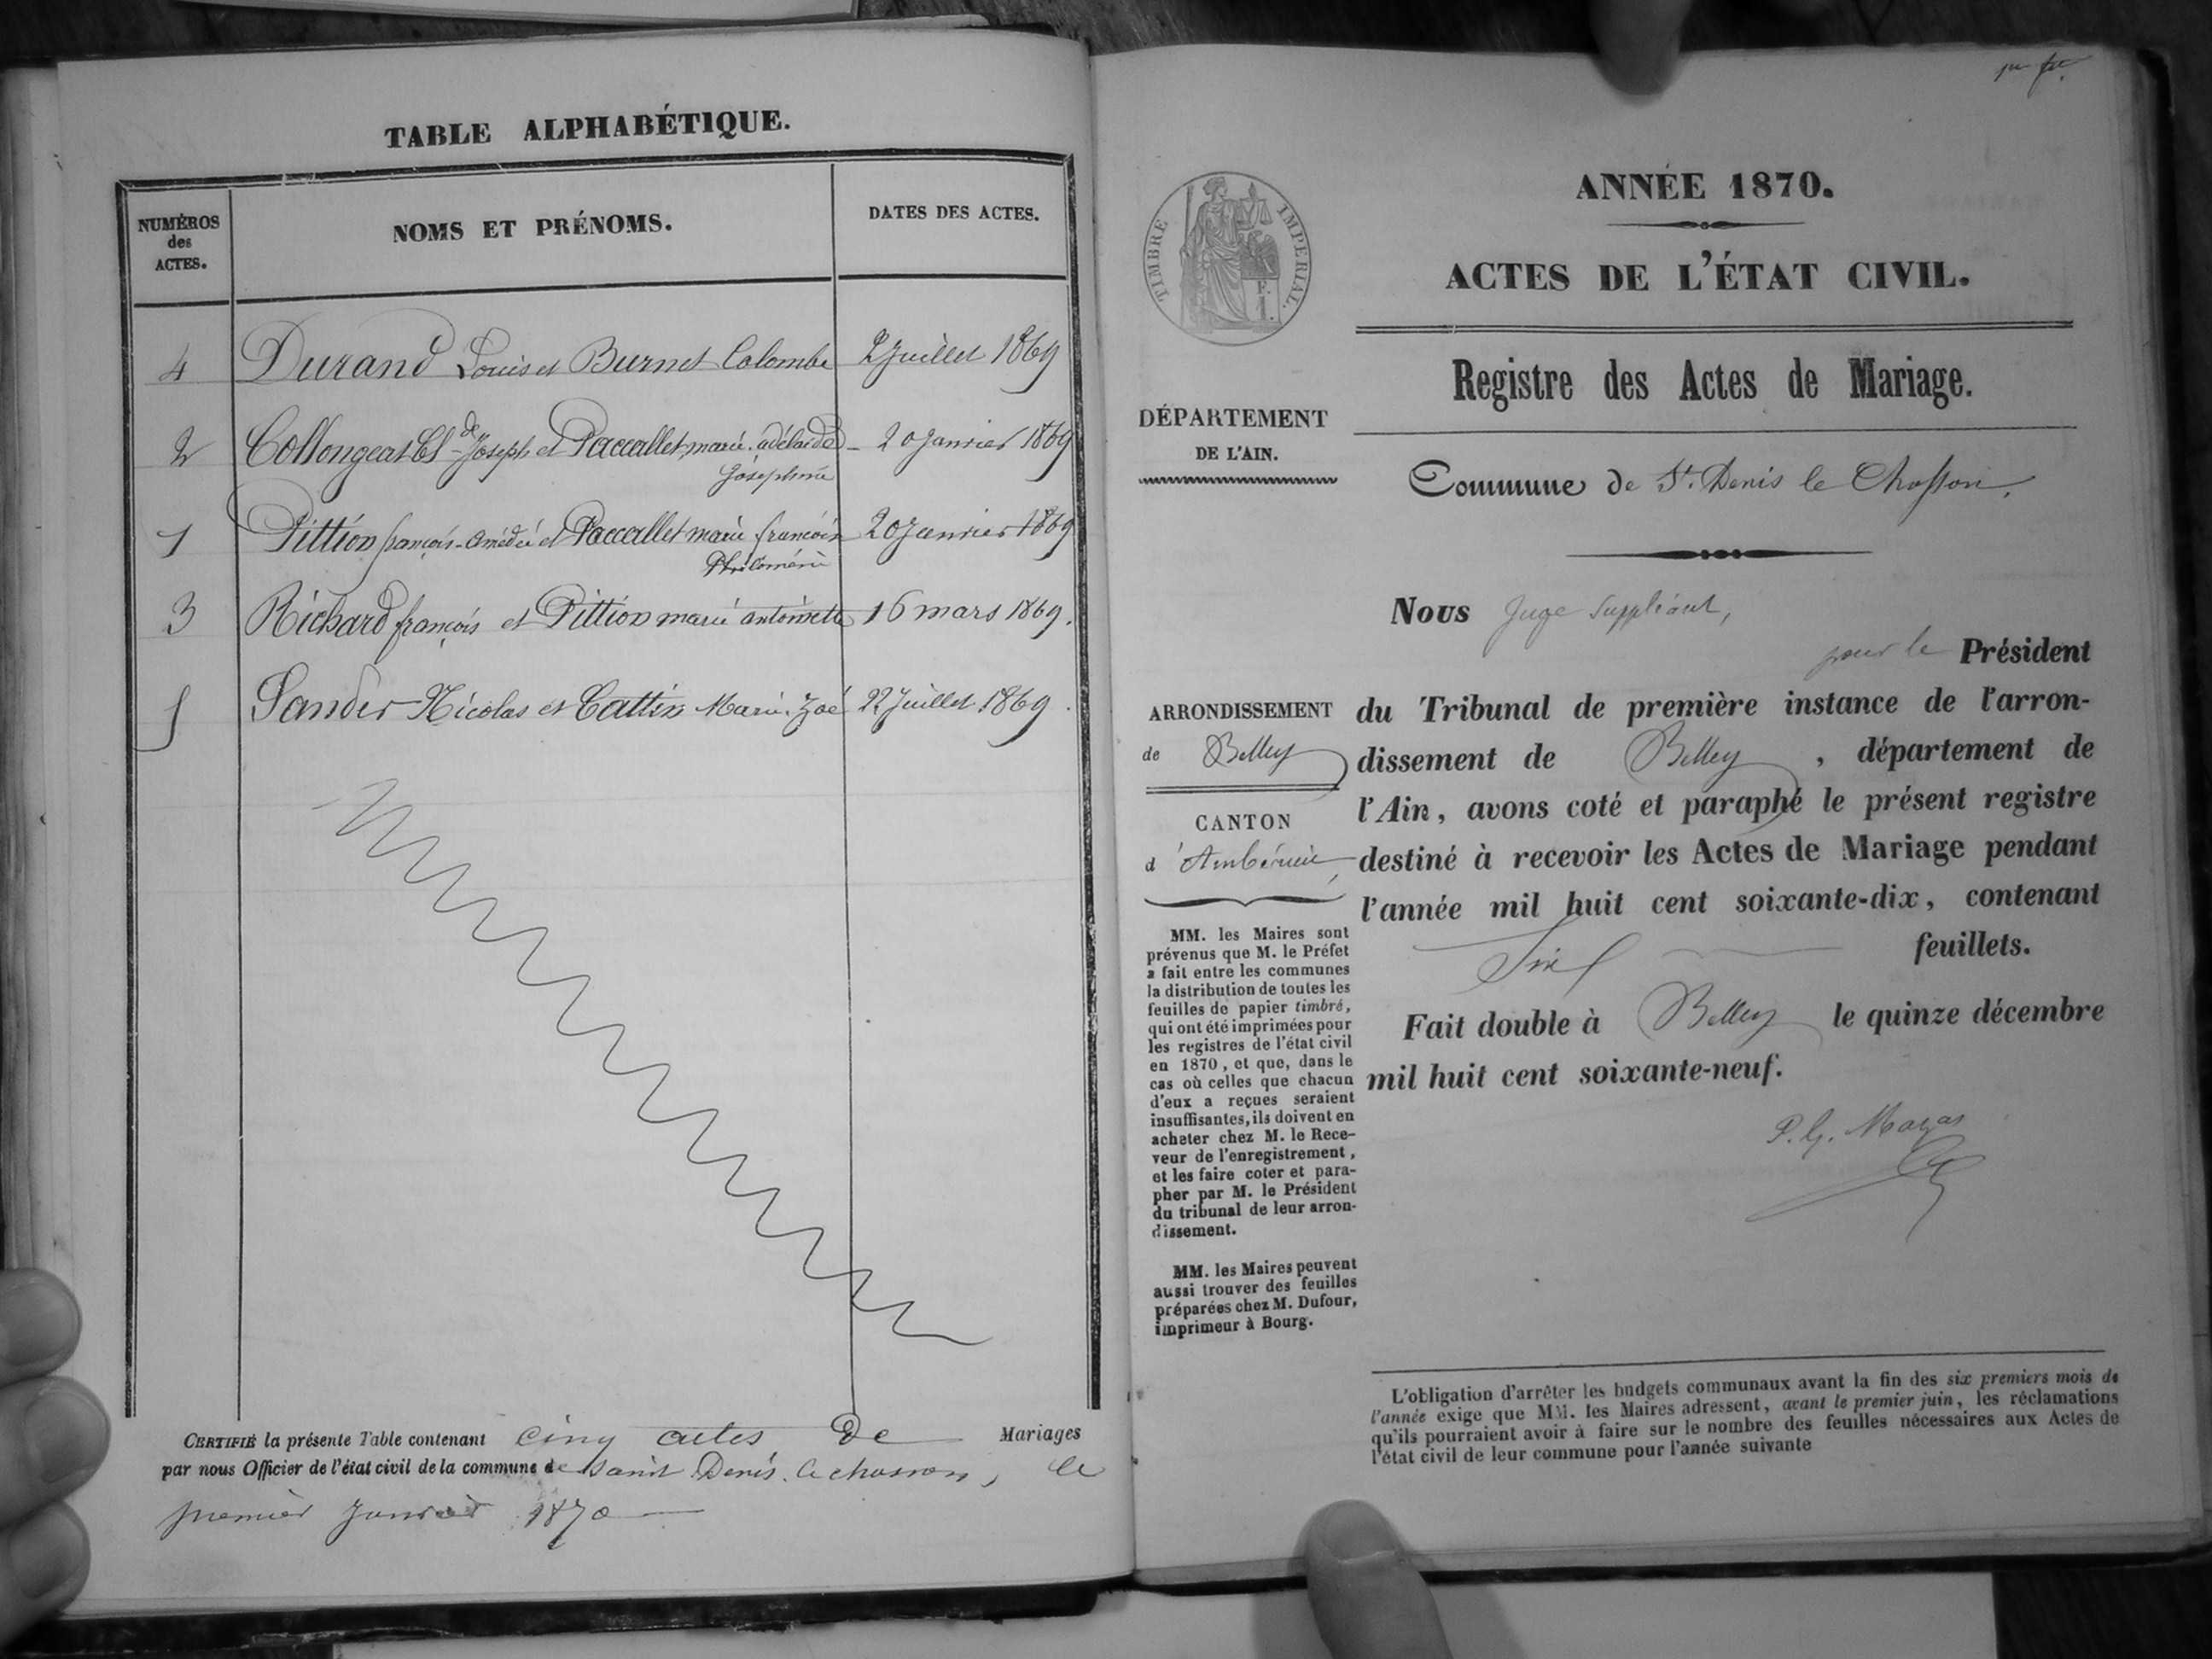 TABLE ALPHABÉTIQUE.
NUMÉROS
des
ACTES.
NOMS ET PRÉNOMS.
DATES DES ACTES.
4 Durand Louis et Burnet Colombe 2 Juillet 1869
2 Collongeat Cl de Joseph et Paccallet marie adélaïde - 20 Janvier 1869
Joséphine
1 Pittion françois-Amédée et Paccallet marie françoise 20 Janvier 1869
Philoméne
3 Richard françois et Pittion marie antoinette 16 mars 1869.
5 Sander Nicolas et Cattin Marie Zoé 22 Juillet 1869.
CERTIFIÉ la présente Table contenant cinq actes de Mariages
par nous Officier de l'état civil de la commune de saint Denis le chosson, le
premier Janvier 1870
1er
ANNÉE 1870.
ACTES DE L'ÉTAT CIVIL.
TIMBRE IMPERIAL.
F.
1.
Registre des Actes de Mariage.
DÉPARTEMENT
DE L'AIN.
Commune de St. Denis le Chosson.
Nous Juge Suppléant,
pour le Président
ARRONDISSEMENT
de Belley
CANTON
d'Ambérieu
du Tribunal de première instance de l'arron-
dissement de Belley, département de
l'Ain, avons coté et paraphé le présent registre
destiné à recevoir les Actes de Mariage pendant
l'année mil huit cent soixante-dix, contenant
Six feuillets.
Fait double à Belley le quinze décembre
mil huit cent soixante-neuf.
P. G. Mazas
MM. les Maires sont
prévenus que M. le Préfet
a fait entre les communes
la distribution de toutes les
feuilles de papier timbré,
qui ont été imprimées pour
les registres de l'état civil
en 1870, et que, dans le
cas où celles que chacun
d'eux a reçues seraient
insuffisantes, ils doivent en
acheter chez M. le Rece-
veur de l'enregistrement,
et les faire coter et para-
pher par M. le Président
du tribunal de leur arron-
dissement.
MM. les Maires peuvent
aussi trouver des feuilles
préparées chez M. Dufour,
imprimeur à Bourg.
L'obligation d'arrêter les budgets communaux avant la fin des six premiers mois de
l'année exige que MM. les Maires adressent, avant le premier juin, les réclamations
qu'ils pourraient avoir à faire sur le nombre des feuilles nécessaires aux Actes de
l'état civil de leur commune pour l'année suivante